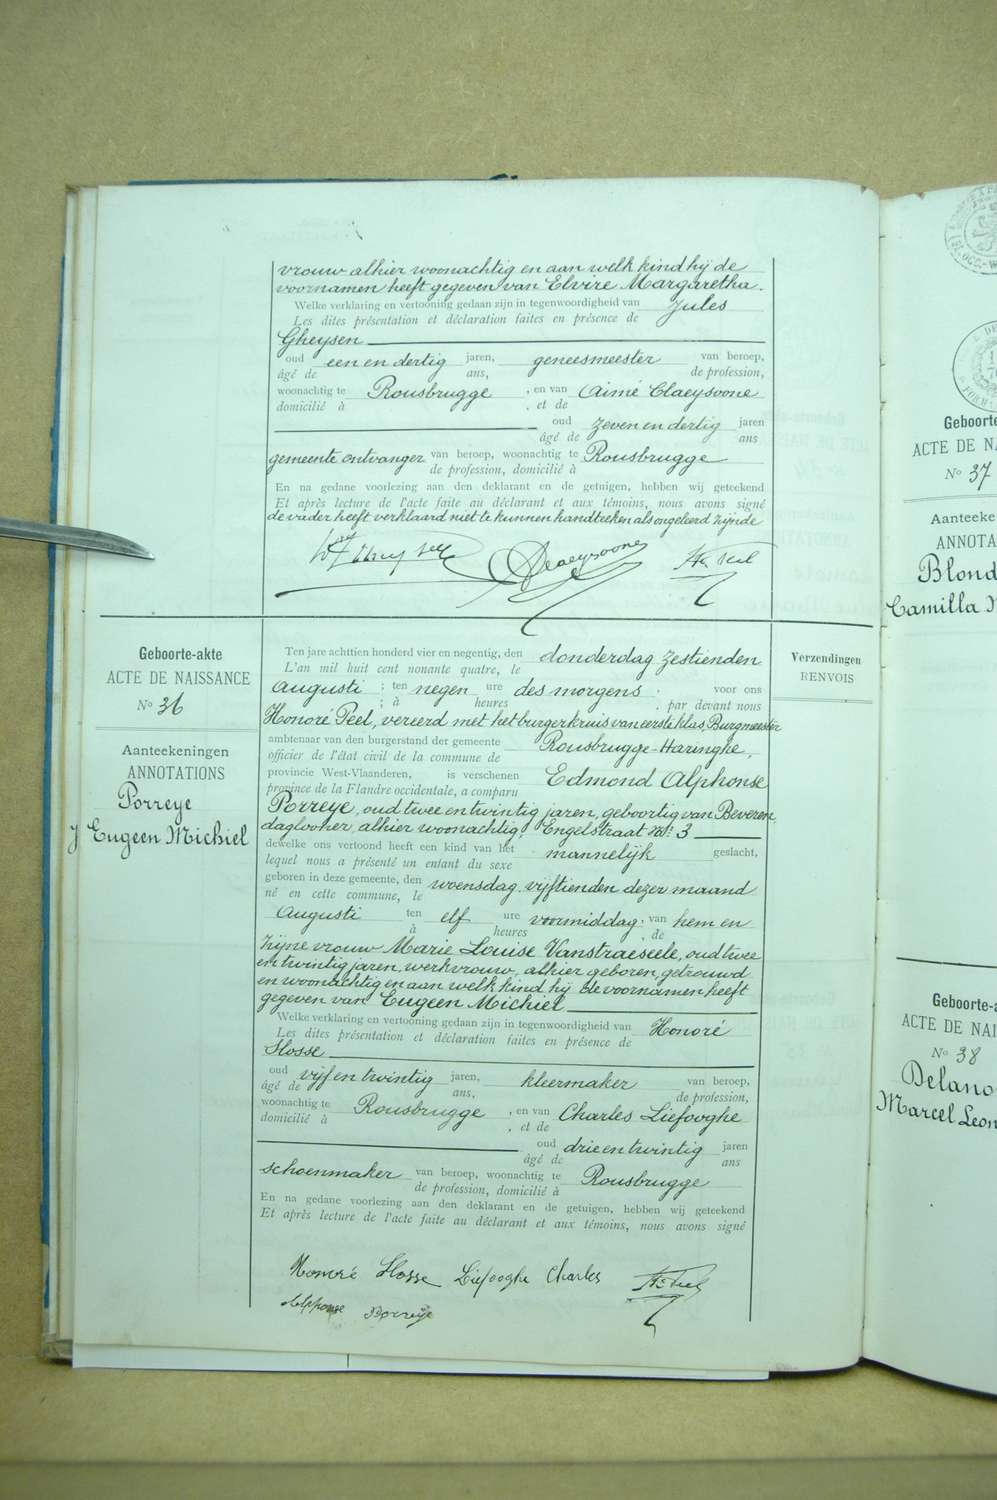 vrouw alhier woonachtig en aan welk kind hij de
voornamen heeft gegeven van Elvire Margaretha.
Welke verklaring en vertooning gedaan zijn in tegenwoordigheid van Jules
Les dites présentation et déclaration faites en présence de
Gheysen
oud een en dertig jaren, geneesmeester van beroep,
âgé de ans, de profession,
woonachtig te Rousbrugge , en van Aimé Claeysoone
domicilié à , et de
oud zeven en dertig jaren
âgé de ans
gemeente ontvanger van beroep, woonachtig te Rousbrugge
de profession, domicilié à
En na gedane voorlezing aan den deklarant en de getuigen, hebben wij geteekend
Et après lecture de l'acte faite au déclarant et aux témoins, nous avons signé
de vader heeft verklaard niet te kunnen handteeken als ongeleerd zijnde
Claeysoone
Geboorte-akte
ACTE DE NAISSANCE
No 36
Aanteekeningen
ANNOTATIONS
Porreye
Eugeen Michiel
Ten jare achttien honderd vier en negentig, den donderdag zestienden
L'an mil huit cent nonante quatre, le
Augusti ; ten negen ure des morgens . voor ons
; à heures , par devant nous
Honoré Peel, vereerd met het burgerkruis van eerste klas, Burgmeester
ambtenaar van den burgerstand der gemeente Rousbrugge-Haringhe,
officier de l'état civil de la commune de
provincie West-Vlaanderen, is verschenen Edmond Alphonse
province de la Flandre occidentale, a comparu
Porreye, oud twee en twintig jaren, geboortig van Beveren,
daglooner, alhier woonachtig, Engelstraat No: 3
dewelke ons vertoond heeft een kind van het mannelijk geslacht,
lequel nous a présenté un enfant du sexe
geboren in deze gemeente, den woensdag vijftienden dezer maand
né en cette commune, le
Augusti ten elf ure voormiddag . van hem en
à heures , de
zijne vrouw Marie Louise Vanstraeseele, oud twee
en twintig jaren, werkvrouw, alhier geboren, getrouwd
en woonachtig en aan welk kind hij de voornamen heeft
gegeven van Eugeen Michiel
Welke verklaring en vertooning gedaan zijn in tegenwoordigheid van Honoré
Les dites présentation et déclaration faites en présence de
Slosse
oud vijf en twintig jaren, kleermaker van beroep,
âgé de ans, de profession,
woonachtig te Rousbrugge , en van Charles Liefooghe
domicilié à , et de
oud drie en twintig jaren
âgé de ans
schoenmaker van beroep, woonachtig te Rousbrugge
de profession, domicilié à
En na gedane voorlezing aan den deklarant en de getuigen, hebben wij geteekend
Et après lecture de l'acte faite au déclarant et aux témoins, nous avons signé
Honoré Slosse Liefooghe Charles
Alphonse Porreye
Verzendingen
RENVOIS
Geboorte
ACTE DE NA
No 37
Aanteeke
ANNOTA
Blond
Camilla M
Geboorte-a
ACTE DE NAI
No 38
Delano
Marcel Leon